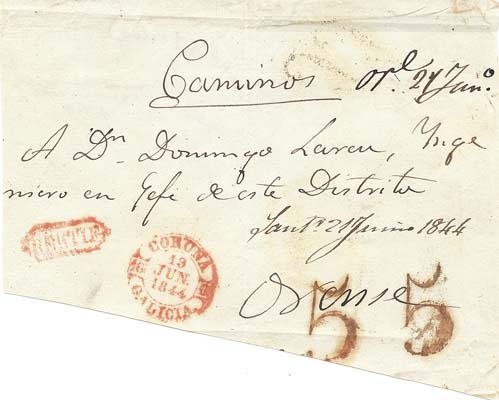 Caminos Or.l 21 Jun.o
A Dn. Domingo Lareu, Inge
niero en Gefe de este Distrito
Sant.o 21 Junio 1844
CORUÑA
19
JUN.
1844
GALICIA
Orense
5 5